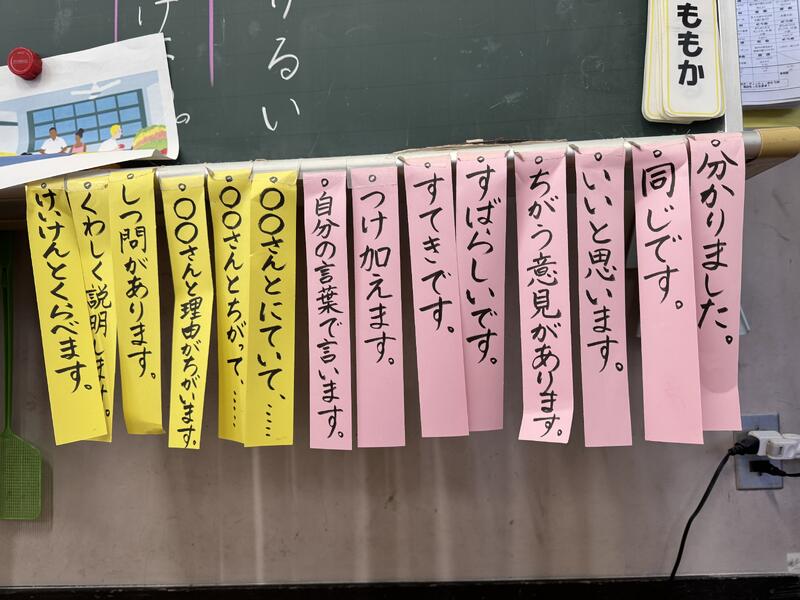 るい
ももか
分かりました。
同じです。
いいと思います。
ちがう意見があります。
すばらしいです。
すてきです。
つけ加えます。
自分の言葉で言います。
〇〇さんとにていて、……
〇〇さんとちがって、……
〇〇さんと理由がちがいます。
しつ問があります。
くわしく説明します。
けいけんとくらべます。